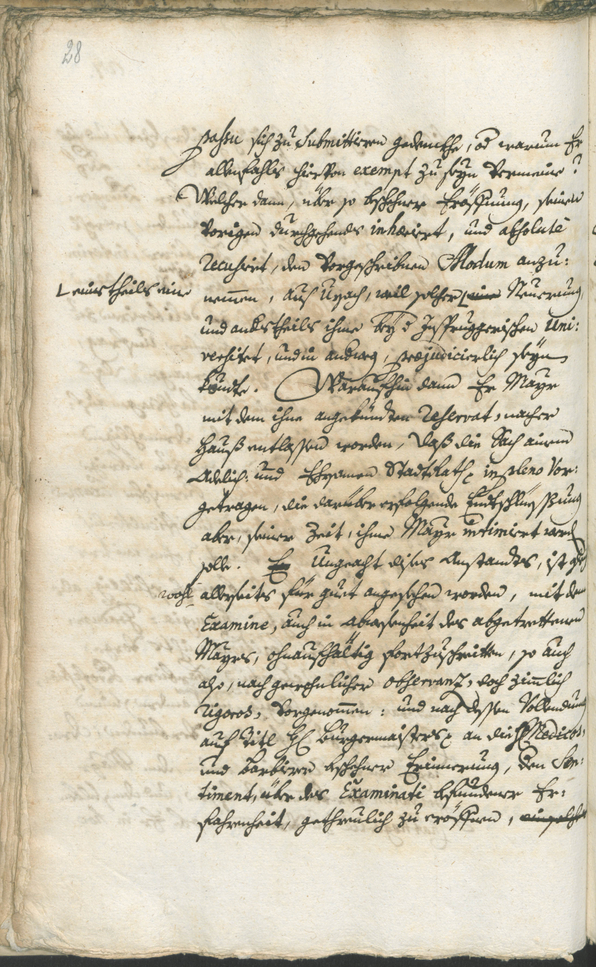 28
sich zu submittieren gedenckhe, od warum Er
allenfahls hievon exempt zu seyn vermeine?
Welcher dann, über so beschehne Eröffnung, seinen
vorigen durchgehends inhæriert, und absolutè
recusiert, den vorgeschribnen Modum anzu:
nemmen, auß Ursach, weil solcher
einestheils eine
Neuerung,
und anderstheils ihme bey d Insprüggerischen Uni:
versitet, und in andweg, præjudicierlich seyn
kündte. Woraufhin dann Er Mayr
mit dem ihme angekündten reservat, nacher
Hauß entlassen worden, daß die Sach einem
Adelich: und Ehrsamen StadtRath in pleno vor:
getragen, die darüber erfolgende Entschliessung
aber, seiner Zeit, ihme Mayr intimiert werd
solle. Ungeacht dises Anstandts, ist
wohl
allerseites für guet angesehen worden, mit dem
Examine, auch in abwesenheit des abgetrettenen
Mayrs, ohnaufhältig fortzuschreitten, so auch
also, nach gewohnlicher observanz, doch zimlich
rigoros, vorgenommen: und nach dessen Vollendung
auf Titl H: Burgermaisters an die H: Medicos,
und Barbierer beschehene Erinnerung, den Sen:
timent, über des Examinati befundene Er:
fahrenheit, getreulich zu eröffnen,